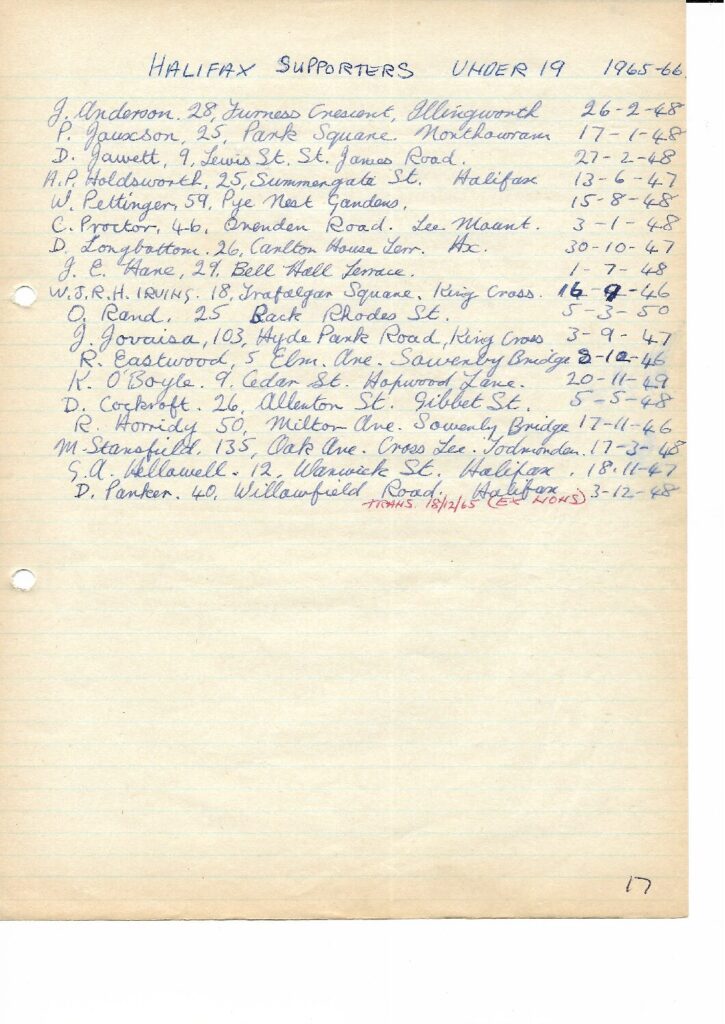 HALIFAX SUPPORTERS UNDER 19 1965-66.
J. Anderson. 28, Furness Crescent, Illingworth 26-2-48
P. Jauxson, 25, Park Square. Northowram 17-1-48
D. Jawett, 9, Lewis St. St. James Road. 27-2-48
A.P. Holdsworth, 25, Summergate St. Halifax 13-6-47
W. Pettinger, 59, Pye Nest Gardens. 15-8-48
C. Proctor, 46, Ovenden Road. Lee Mount. 3-1-48
D. Longbottom. 26, Carlton House Terr. Hx. 30-10-47
J. E. Hane, 29, Bell Hall Terrace. 1-7-48
W.J.R.H. IRVING. 18, Trafalgar Square, King Cross. 16-9-46
O. Rand. 25 Back Rhodes St. 5-3-50
J. Jovaisa, 103, Hyde Park Road, King Cross 3-9-47
R. Eastwood, 5 Elm. Ave. Sowerby Bridge -12-46
K. O'Boyle. 9. Cedar St. Hopwood Lane. 20-11-49
D. Cockroft. 26, Allerton St. Gibbet St. 5-5-48
R. Horridy 50, Milton Ave. Sowerby Bridge 17-11-46
M. Stansfield. 135, Oak Ave. Cross Lee. Todmorden. 17-3-48
G. A. Hellowell. 12. Warwick St. Halifax. 18-11-47
D. Parker. 40, Willowfield Road. Halifax 3-12-48
TRANS. 18/12/65 (EX LIONS)
17